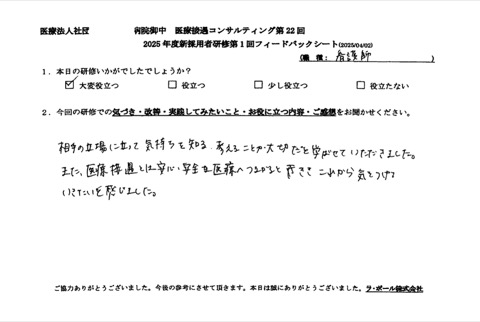 医療法人社団 病院御中 医療接遇コンサルティング第22回
2025年度新採用者研修第1回フィードバックシート(2025/04/02)
(職種: 看護師 )
1．本日の研修いかがでしたでしょうか？
☑大変役立つ □役立つ □少し役立つ □役立たない
2．今回の研修での気づき・改善・実践してみたいこと・お役に立つ内容・ご感想をお聞かせください。
相手の立場に立って気持ちを知る、考えることが大切だと学ばせていただきました。
また、医療接遇とは安心・安全な医療へつながると聞き これから気をつけて
いきたいと感じました。
ご協力ありがとうございました。今後の参考にさせて頂きます。本日は誠にありがとうございました。ラ・ポール株式会社